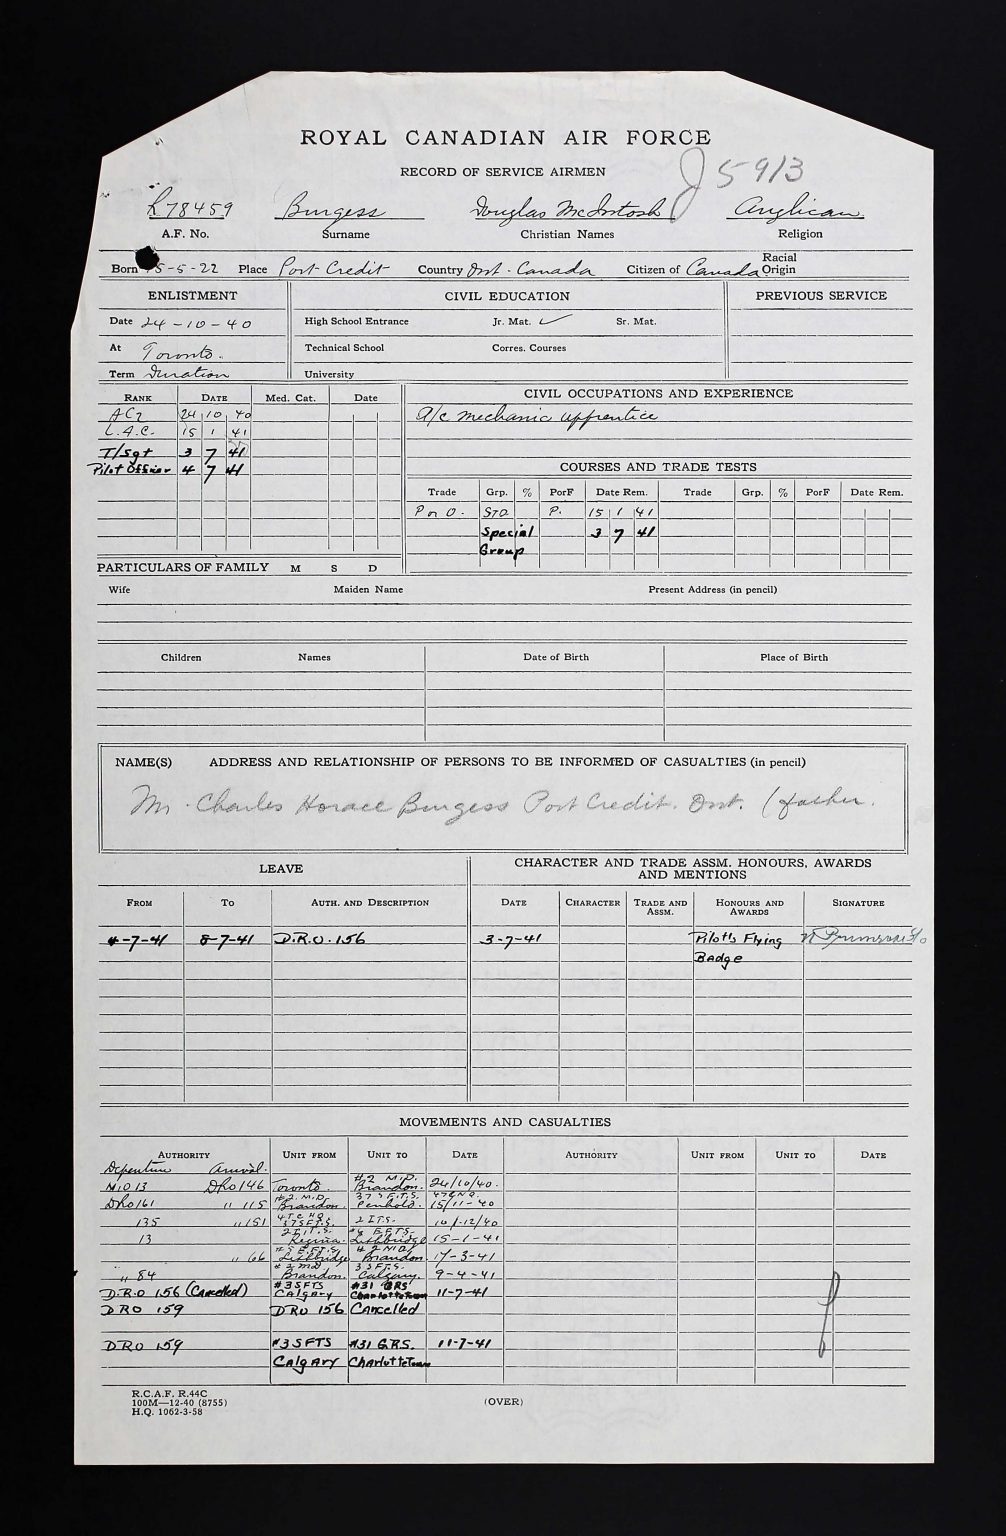 ROYAL CANADIAN AIR FORCE
RECORD OF SERVICE AIRMEN
J5913
R78459 Burgess Douglas McIntosh Anglican
A.F. No. Surname Christian Names Religion
Born 5-5-22 Place Port Credit Country Ont. Canada Citizen of Canada Racial Origin
ENLISTMENT CIVIL EDUCATION PREVIOUS SERVICE
Date 24-10-40 High School Entrance Jr. Mat. ✓ Sr. Mat.
At Toronto. Technical School Corres. Courses
Term Duration University
RANK DATE Med. Cat. Date CIVIL OCCUPATIONS AND EXPERIENCE
AC2 24 10 40 a/c mechanic apprentice
L.A.C. 15 1 41
T/Sgt 3 7 41
Pilot Officer 4 7 41 COURSES AND TRADE TESTS
Trade Grp. % PorF Date Rem. Trade Grp. % PorF Date Rem.
P or O. STD P. 15 1 41
Special 3 7 41
Group
PARTICULARS OF FAMILY M S D
Wife Maiden Name Present Address (in pencil)
Children Names Date of Birth Place of Birth
NAME(S) ADDRESS AND RELATIONSHIP OF PERSONS TO BE INFORMED OF CASUALTIES (in pencil)
Mr. Charles Horace Burgess Port Credit. Ont. (father.
LEAVE CHARACTER AND TRADE ASSM. HONOURS, AWARDS
AND MENTIONS
FROM TO AUTH. AND DESCRIPTION DATE CHARACTER TRADE AND ASSM. HONOURS AND AWARDS SIGNATURE
4-7-41 8-7-41 D.R.O. 156 3-7-41 Pilots Flying
Badge
MOVEMENTS AND CASUALTIES
AUTHORITY UNIT FROM UNIT TO DATE AUTHORITY UNIT FROM UNIT TO DATE
Departure Arrival.
M.O 13 DRO 146 Toronto. #2 M.D. Brandon. 24/10/40.
DRO 161 " 115 #2. M.D. Brandon. 37 S.F.T.S. Penhold. 15/11-40
135 " 151 4 T.C HQ. 37 SFTS. 2 I.T.S. 10/-12/40
13 2 I.T.S. Regina. E.F.T.S. Lethbridge 15-1-41
" 66 # 5 E.F.T.S. Lethbridge # 2 M.D. Brandon 17-3-41
" 84 # 2 MD Brandon. 3 S.F.T.S. Calgary. 9-4-41
D.R.O 156 (Cancelled) #3 SFTS CALGARY #31 GRS Charlottetown 11-7-41
DRO 159 DRO 156 Cancelled
DRO 159 #3 SFTS #31 G.R.S. 11-7-41
Calgary Charlottetown
R.C.A.F. R.44C
100M—12-40 (8755)
H.Q. 1062-3-58
(OVER)